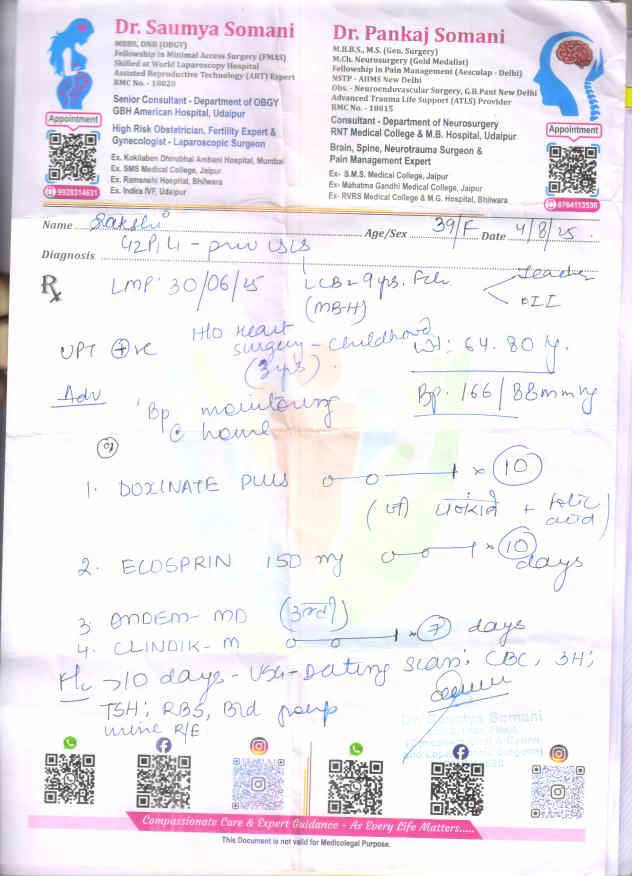 Dr. Saumya Somani
MBBS, DNB (OBGY)
Fellowship in Minimal Access Surgery (FMAS)
Skilled at World Laparoscopy Hospital
Assisted Reproductive Technology (ART) Expert
RMC No. - 18028
Senior Consultant - Department of OBGY
GBH American Hospital, Udaipur
High Risk Obstetrician, Fertility Expert &
Gynecologist - Laparoscopic Surgeon
Ex. Kokilaben Dhirubhai Ambani Hospital, Mumbai
Ex. SMS Medical College, Jaipur
Ex. Ramsnehi Hospital, Bhilwara
Ex. Indira IVF, Udaipur
Appointment
9928314631
Dr. Pankaj Somani
M.B.B.S., M.S. (Gen. Surgery)
M.Ch. Neurosurgery (Gold Medalist)
Fellowship in Pain Management (Aesculap - Delhi)
NSTP - AIIMS New Delhi
Obs. - Neuroendovascular Surgery, G.B.Pant New Delhi
Advanced Trauma Life Support (ATLS) Provider
RMC No. - 18015
Consultant - Department of Neurosurgery
RNT Medical College & M.B. Hospital, Udaipur
Brain, Spine, Neurotrauma Surgeon &
Pain Management Expert
Ex- S.M.S. Medical College, Jaipur
Ex- Mahatma Gandhi Medical College, Jaipur
Ex- RVRS Medical College & M.G. Hospital, Bhilwara
Appointment
8764113536
Name Sakshi Age/Sex 39/F Date 4/8/25
Diagnosis G2P1L1 - prev LSCS
Rx LMP: 30/06/25 LCB - 9 yrs. Fch. Teacher
(MB-H)
UPT +ve H/o heart surgery - childhood wt: 64.80 kg.
(3 yrs).
Adv Bp monitoring Bp. 166/88 mmHg
@ home
1. DOXINATE PLUS x 10
( + folic acid)
2. ECOSPRIN 150 mg x 10 days
3. ONDEM-MD (उल्टी)
4. CLINDIK-M x 7 days
F/u → 10 days - USG - Dating scan; CBC, 3H;
TSH; RBS, Bld group
urine R/E
Dr. Saumya Somani
Compassionate Care & Expert Guidance - As Every Life Matters.....
This Document is not valid for Medicolegal Purpose.